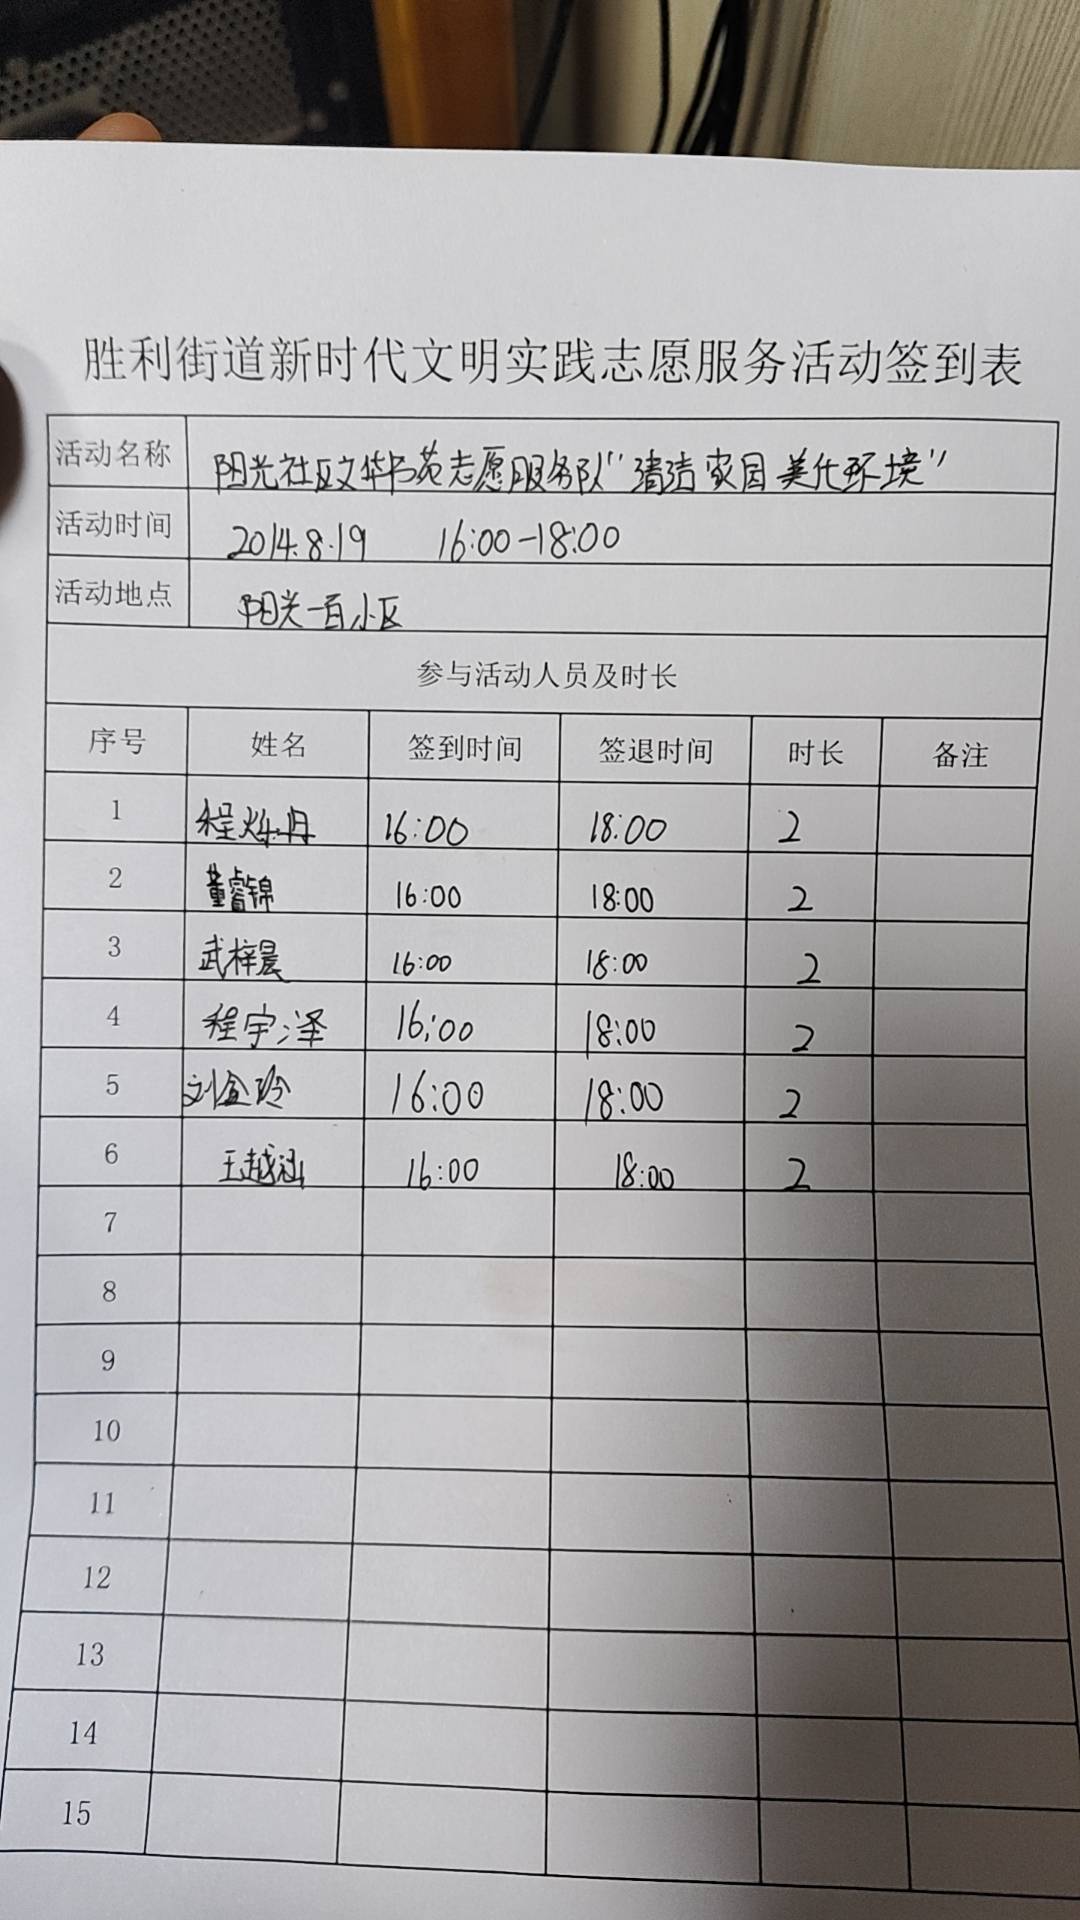 胜利街道新时代文明实践志愿服务活动签到表
活动名称 阳光社区文华书苑志愿服务队“清洁家园 美化环境”
活动时间 2014.8.19 16:00-18:00
活动地点 阳光一百小区
参与活动人员及时长
序号 姓名 签到时间 签退时间 时长 备注
1 程烁丹 16:00 18:00 2
2 董睿锦 16:00 18:00 2
3 武梓晨 16:00 18:00 2
4 程宇泽 16:00 18:00 2
5 刘金玲 16:00 18:00 2
6 王越涵 16:00 18:00 2
7
8
9
10
11
12
13
14
15